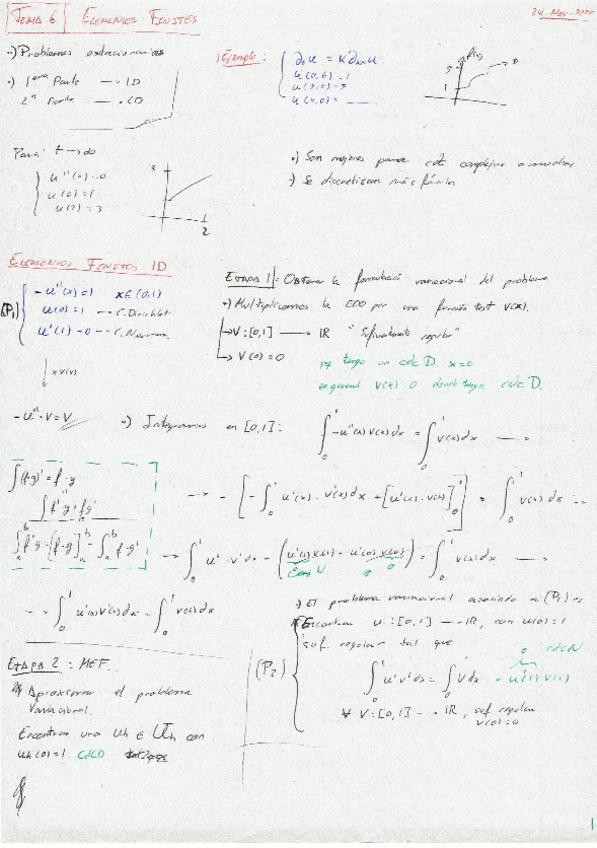 TEMA 6 | ELEMENTOS FINITOS
24-Nov-
·) Problemas estacionarios
·) 1era Parte — 1D
2ª Parte — 2D
Ejemplo:
∂t u = K ∂xx u
u(0,t) = 1
u(2,t) = 3
u(x,0) =
Para t → ∞
u''(x) = 0
u(0) = 1
u(2) = 3
3
2
·) Son mejores para cdc complejas
·) Se discretizan más fácil
ELEMENTOS FINITOS 1D
(P₁)
-u''(x) = 1 x∈(0,1)
u(0) = 1 --- C. Dirichlet
u'(1) = 0 --- C. Neumann
x v(x)
-u''·v = v
ETAPA 1: Obtener la formulación variacional del problema
·) Multiplicamos la EDO por una función test v(x).
→ V: [0,1] → IR "Suficientemente regular"
→ V(0) = 0
tengo un cdc D. x=0
en general v(x) = 0 donde tenga cdc D.
·) Integramos en [0,1]: ∫₀¹ -u''(x) v(x) dx = ∫₀¹ v(x) dx →
∫(f·g)' = f·g
∫ f'g + fg'
∫ₐᵇ f'g = [f·g]ₐᵇ - ∫ₐᵇ f·g'
→ - [ -∫₀¹ u'(x)·v'(x) dx + [u'(x)·v(x)]₀¹ ] = ∫₀¹ v(x) dx →
→ ∫₀¹ u'·v' dx - (u'(1)v(1) - u'(0)v(0)) = ∫₀¹ v(x) dx →
→ ∫₀¹ u'(x)v'(x) dx = ∫₀¹ v(x) dx
·) El problema variacional asociado a (P₁) es
(P₂)
Encontrar u: [0,1] → IR, con u(0)=1
suf. regular tal que
∫₀¹ u'v' dx = ∫₀¹ v dx + u'(1)v(1)
0 cdcN
∀ V: [0,1] → IR, suf regular
v(0)=0
ETAPA 2: MEF.
Aproximar el problema
variacional.
Encontrar una uh ∈ Uh con
uh(0)=1 CdcD
1